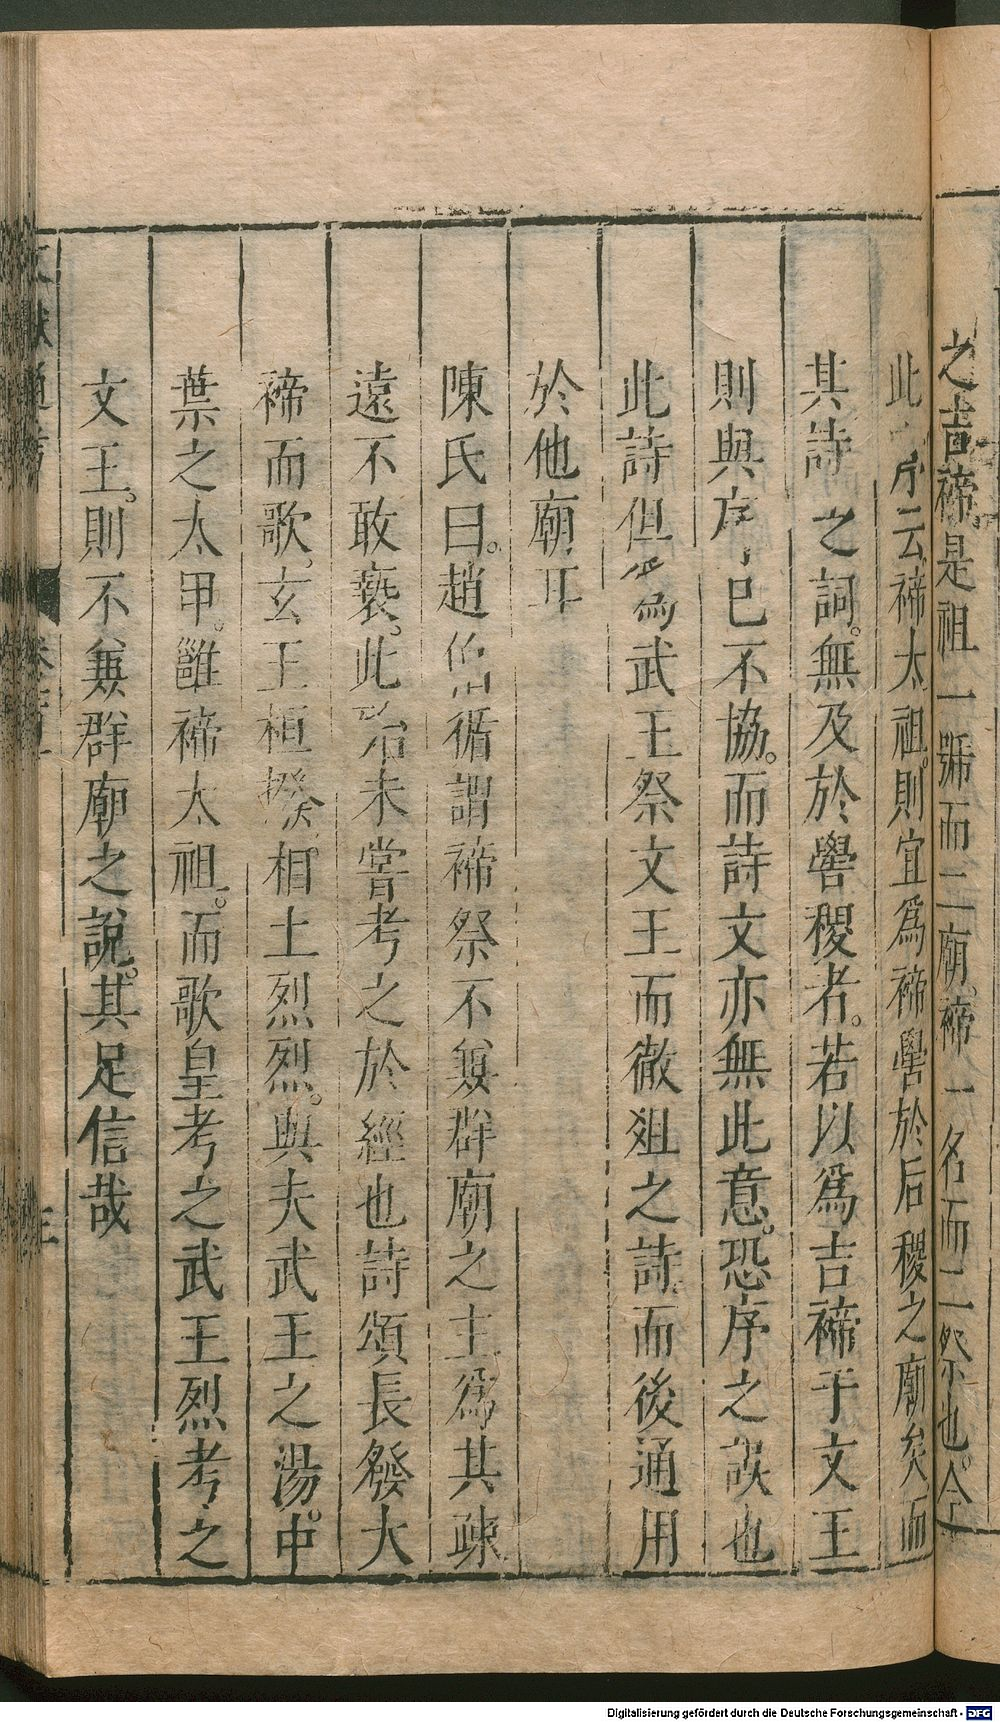 之吉禘是祖一號而二廟禘一名而二祭也今
此序云禘太祖則宜爲禘嚳於后稷之廟矣而
其詩之詞無及於嚳稷者若以爲吉禘于文王
則與序已不協而詩文亦無此意恐序之誤也
此詩但爲武王祭文王而徹俎之詩而後通用
於他廟耳
陳氏曰趙伯循謂禘祭不兼群廟之主爲其疎
遠不敢褻此殆未嘗考之於經也詩頌長發大
禘而歌玄王桓撥相土烈烈與夫武王之湯中
葉之太甲雝禘太祖而歌皇考之武王烈考之
文王則不兼群廟之說其足信哉
文獻通考
卷百
三
Digitalisierung gefördert durch die Deutsche Forschungsgemeinschaft - DFG